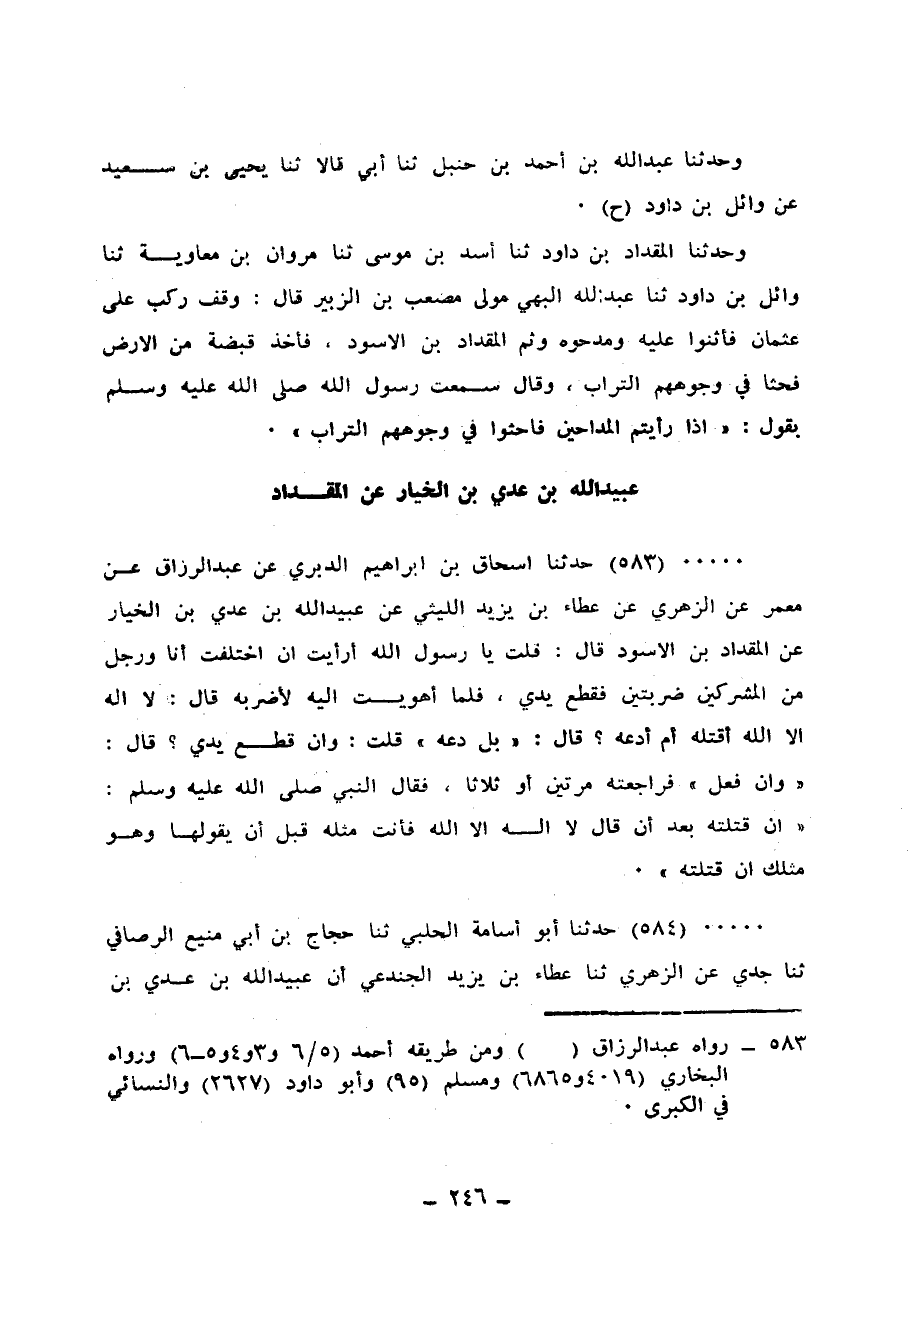 وحدثنا عبدالله بن أحمد بن حنبل ثنا أبي قالا ثنا يحيى بن ســـعيد
عن وائل بن داود (ح) ٠
وحدثنا المقداد بن داود ثنا أسد بن موسى ثنا مروان بن معاويــة ثنا
وائل بن داود ثنا عبدالله البهي مولى مصعب بن الزبير قال : وقف ركب على
عثمان فأثنوا عليه ومدحوه وثم المقداد بن الاسود ، فأخذ قبضة من الارض
فحثا في وجوههم التراب ، وقال سـمعت رسول الله صلى الله عليه وسـلم
يقول : « اذا رأيتم المداحين فاحثوا في وجوههم التراب » ٠
عبيدالله بن عدي بن الخيار عن المقـــداد
٠٠٠٠٠ (٥٨٣) حدثنا اسحاق بن ابراهيم الدبري عن عبدالرزاق عـن
معمر عن الزهري عن عطاء بن يزيد الليثي عن عبيدالله بن عدي بن الخيار
عن المقداد بن الاسود قال : قلت يا رسول الله أرأيت ان اختلفت أنا ورجل
من المشركين ضربتين فقطع يدي ، فلما أهويـــت اليه لأضربه قال : لا اله
الا الله أقتله أم أدعه ؟ قال : « بل دعه » قلت : وان قطـــع يدي ؟ قال :
« وان فعل » فراجعته مرتين أو ثلاثا ، فقال النبي صلى الله عليه وسلم :
« ان قتلته بعد أن قال لا الــه الا الله فأنت مثله قبل أن يقولهـا وهـو
مثلك ان قتلته » ٠
٠٠٠٠٠ (٥٨٤) حدثنا أبو أسامة الحلبي ثنا حجاج بن أبي منيع الرصافي
ثنا جدي عن الزهري ثنا عطاء بن يزيد الجندعي أن عبيدالله بن عـدي بن
٥٨٣ ـ رواه عبدالرزاق (    ) ومن طريقه أحمد (٦/٥ و٣و٤و٥ـ٦) ورواه
البخاري (٤٠١٩و٦٨٦٥) ومسلم (٩٥) وأبو داود (٢٦٢٧) والنسائي
في الكبرى ٠
ـ ٢٤٦ ـ